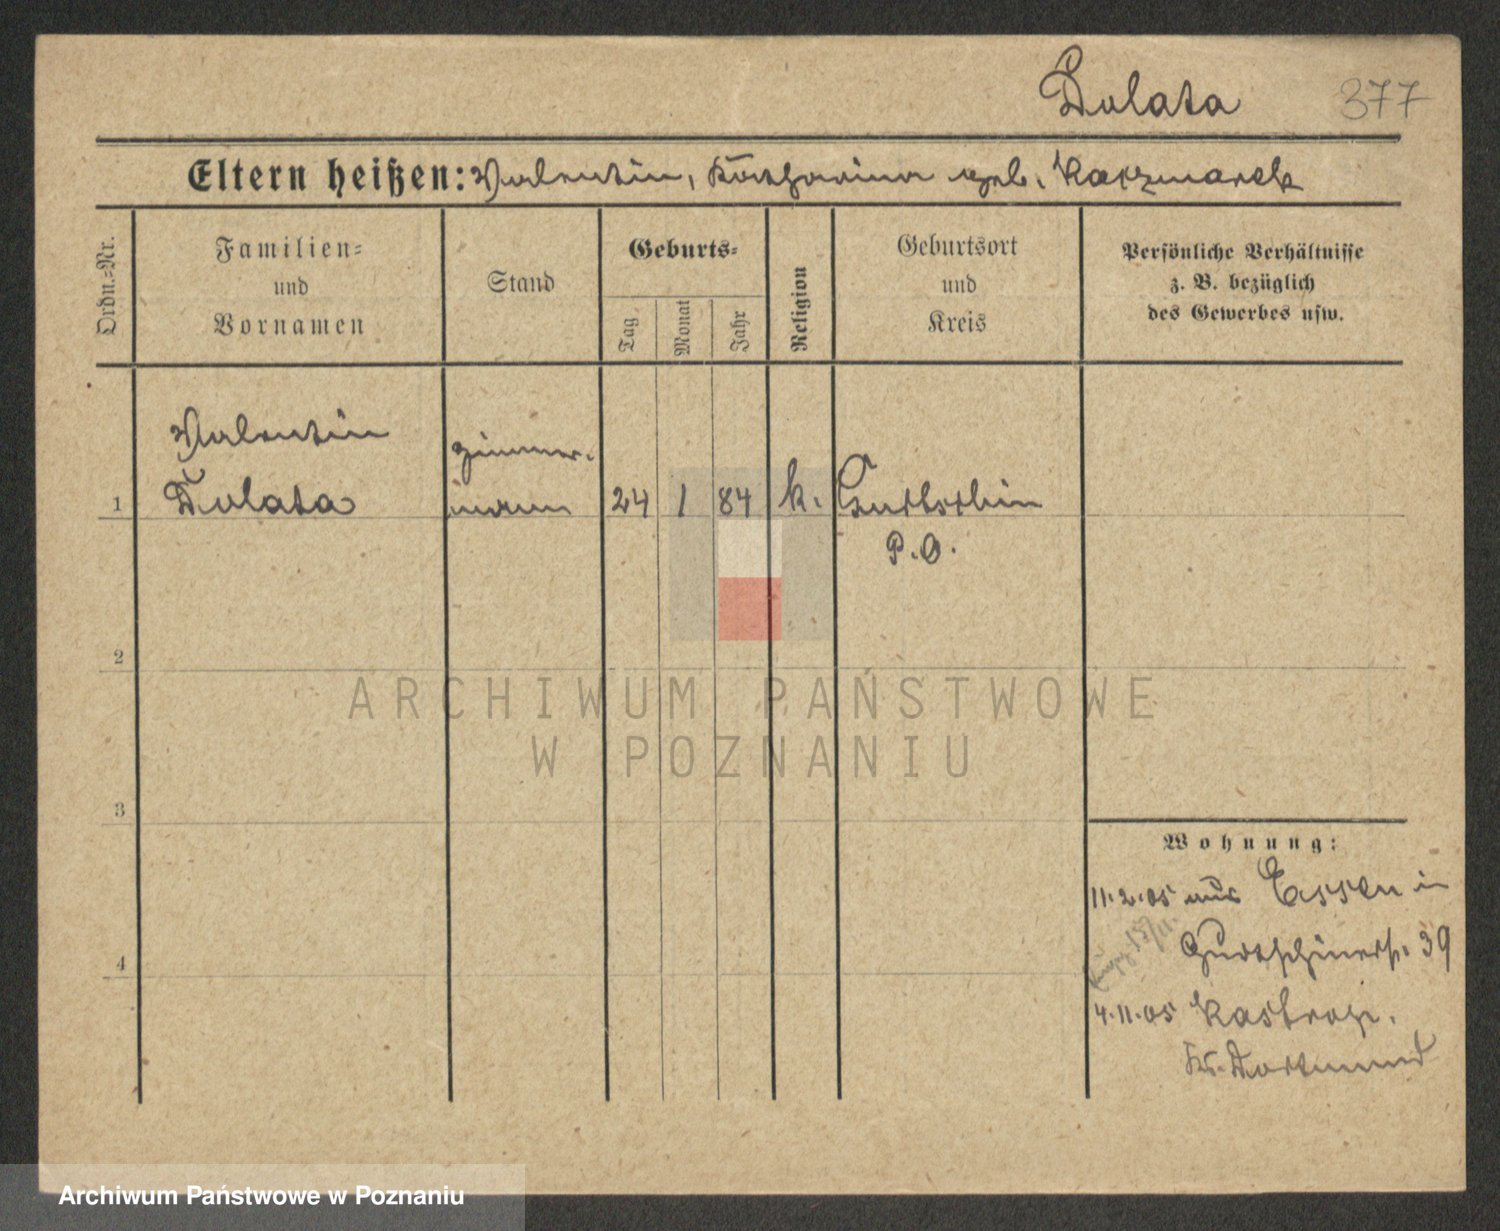 Dolata 377
Eltern heißen: Valentin, Katharina geb. Kaczmarek
Ordn.-Nr.
Familien-
und
Vornamen
Stand
Geburts-
Tag
Monat
Jahr
Religion
Geburtsort
und
Kreis
Persönliche Verhältnisse
z. B. bezüglich
des Gewerbes usw.
Valentin
Zimmer-
1 Dolata mann 24 1 84 k. Gurtschin
P.O.
2
ARCHIWUM PAŃSTWOWE
W POZNANIU
3
Wohnung:
11.2.05 aus Essen in
Gurtschinerstr. 39
4
4.11.05 Kastrop.
Kr. Dortmund
Archiwum Państwowe w Poznaniu